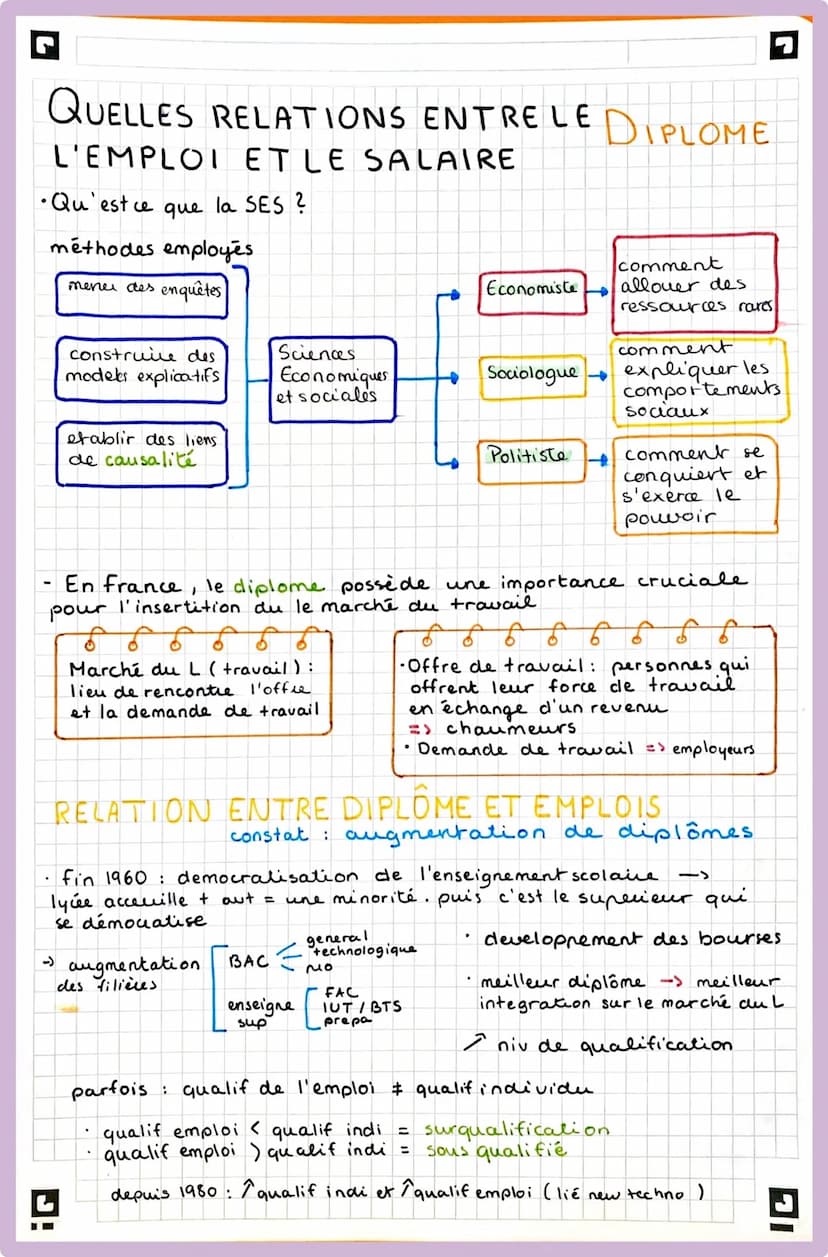 QUELLES RELATIONS ENTRE LE DIPLOME
L'EMPLOI ET LE SALAIRE
• Qu'est ce que la SES ?
méthodes employés
mener des enquêtes
construire des
models explicatifs
etablir des liens
de causalité
Sciences
Economiques
et sociales
Economiste
comment
allouer des
ressources rares
Sociologue
comment
expliquer les
comportements
sociaux
Politiste
comment se
conquiert et
s'exerce le
pouvoir
- En france, le diplome possède une importance cruciale
pour l'insertition du le marché du travail
Marché du L (travail) :
lieu de rencontre l'offre
et la demande de travail
• Offre de travail : personnes qui
offrent leur force de travail
en échange d'un revenu
=> chaumeurs
• Demande de travail => employeurs
RELATION ENTRE DIPLÔME ET EMPLOIS
constat : augmentation de diplômes
• fin 1960 : democratisation de l'enseignement scolaire →
lycée acceuille + aut = une minorité. puis c'est le superieur qui
se démocratise
→ augmentation
des filières
BAC
general
technologique
enseigne
sup
FAC
IUT / BTS
prepa
• developpement des bourses
• meilleur diplôme → meilleur
integration sur le marché du L
↗ niv de qualification
parfois : qualif de l'emploi ≠ qualif individu
• qualif emploi < qualif indi = surqualification
• qualif emploi > qualif indi = sous qualifié
depuis 1980 : ↑ qualif indi et ↑ qualif emploi (lié new techno)